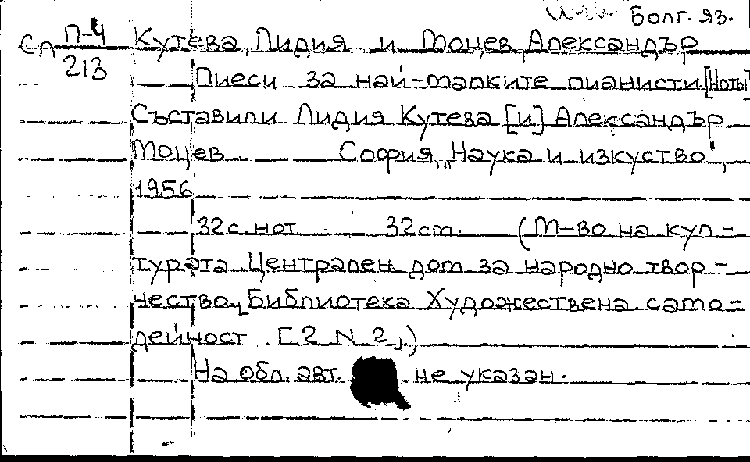 Болг. яз.
Сл П-4 Кутева, Лидия и Моцев, Александър
213
Пиеси за най-малките пианисти [Ноты]
Съставили Лидия Кутева [и] Александър
Моцев София, „Наука и изкуство",
1956
32 с. нот 32 см. (М-во на кул-
турата Централен дом за народно твор-
чество. Библиотека Художествена само-
дейност. [2 N 2].)
На обл. авт. не указан.